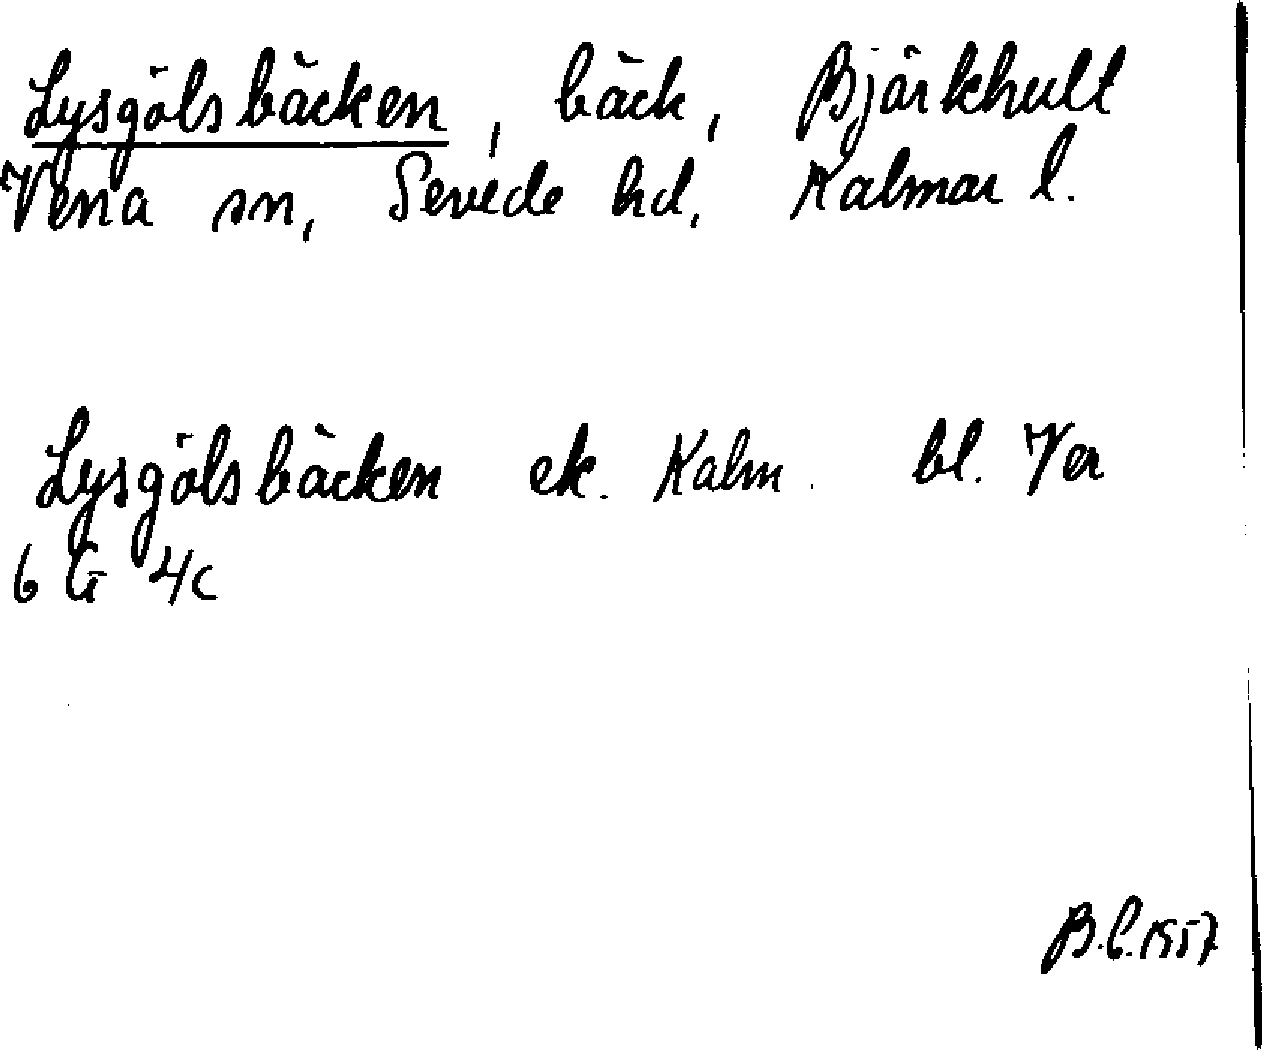 Lysgölsbäcken, bäck, Björkhult
Vena sn, Sevede hd, Kalmar l.
Lysgölsbäcken ek. Kalm. bl. Ver
6 G 4c
B.L. 1957